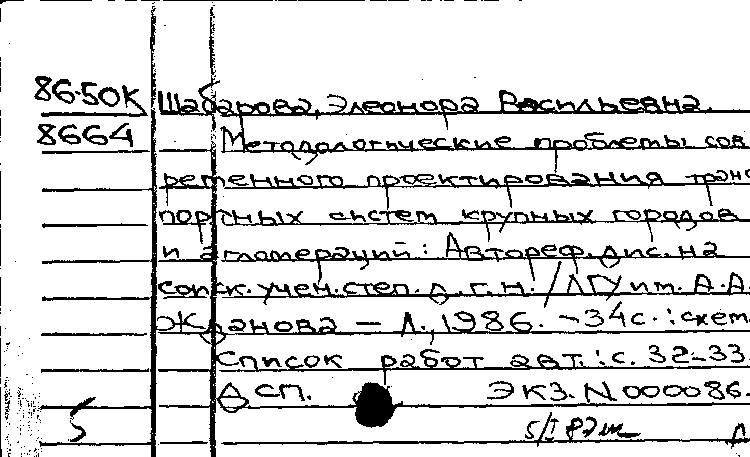 86-50К Шабарова, Элеонора Васильевна.
8664 Методологические проблемы сов
ременного проектирования транс
портных систем крупных городов
и агломераций: Автореф. дис. на
соиск. учен. степ. д.г.н. / ЛГУ им. А.А.
Жданова – Л., 1986. – 34с.: схем
Список работ авт.: с. 32-33
ДСП. ЭКЗ. N 000086.
5